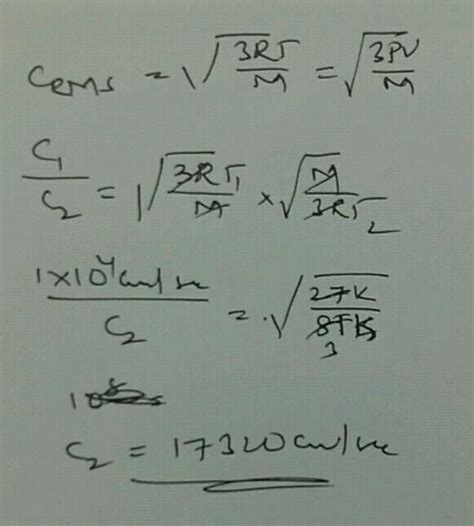 C_RMS = √(3RT/M) = √(3PV/M)
C₁/C₂ = √(3RT₁/M) × √(M/3RT₂)
1×10⁴ cm/sec / C₂ = √(27K/81K)
3
10
C₂ = 17320 cm/sec